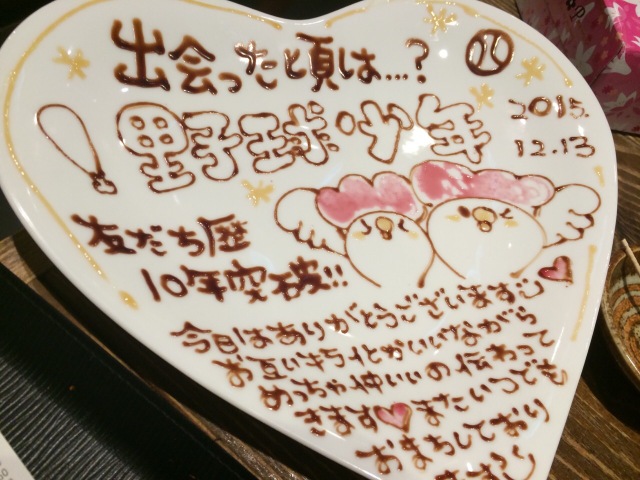 出会ったと頃は…?
野球少年
2015.
12.13
友だち歴
10年突破!!
今日はありがとうございます
お互いキライとかいいながら
めっちゃ仲いいの伝わって
きます♥またいつでも
おまちしており
ます